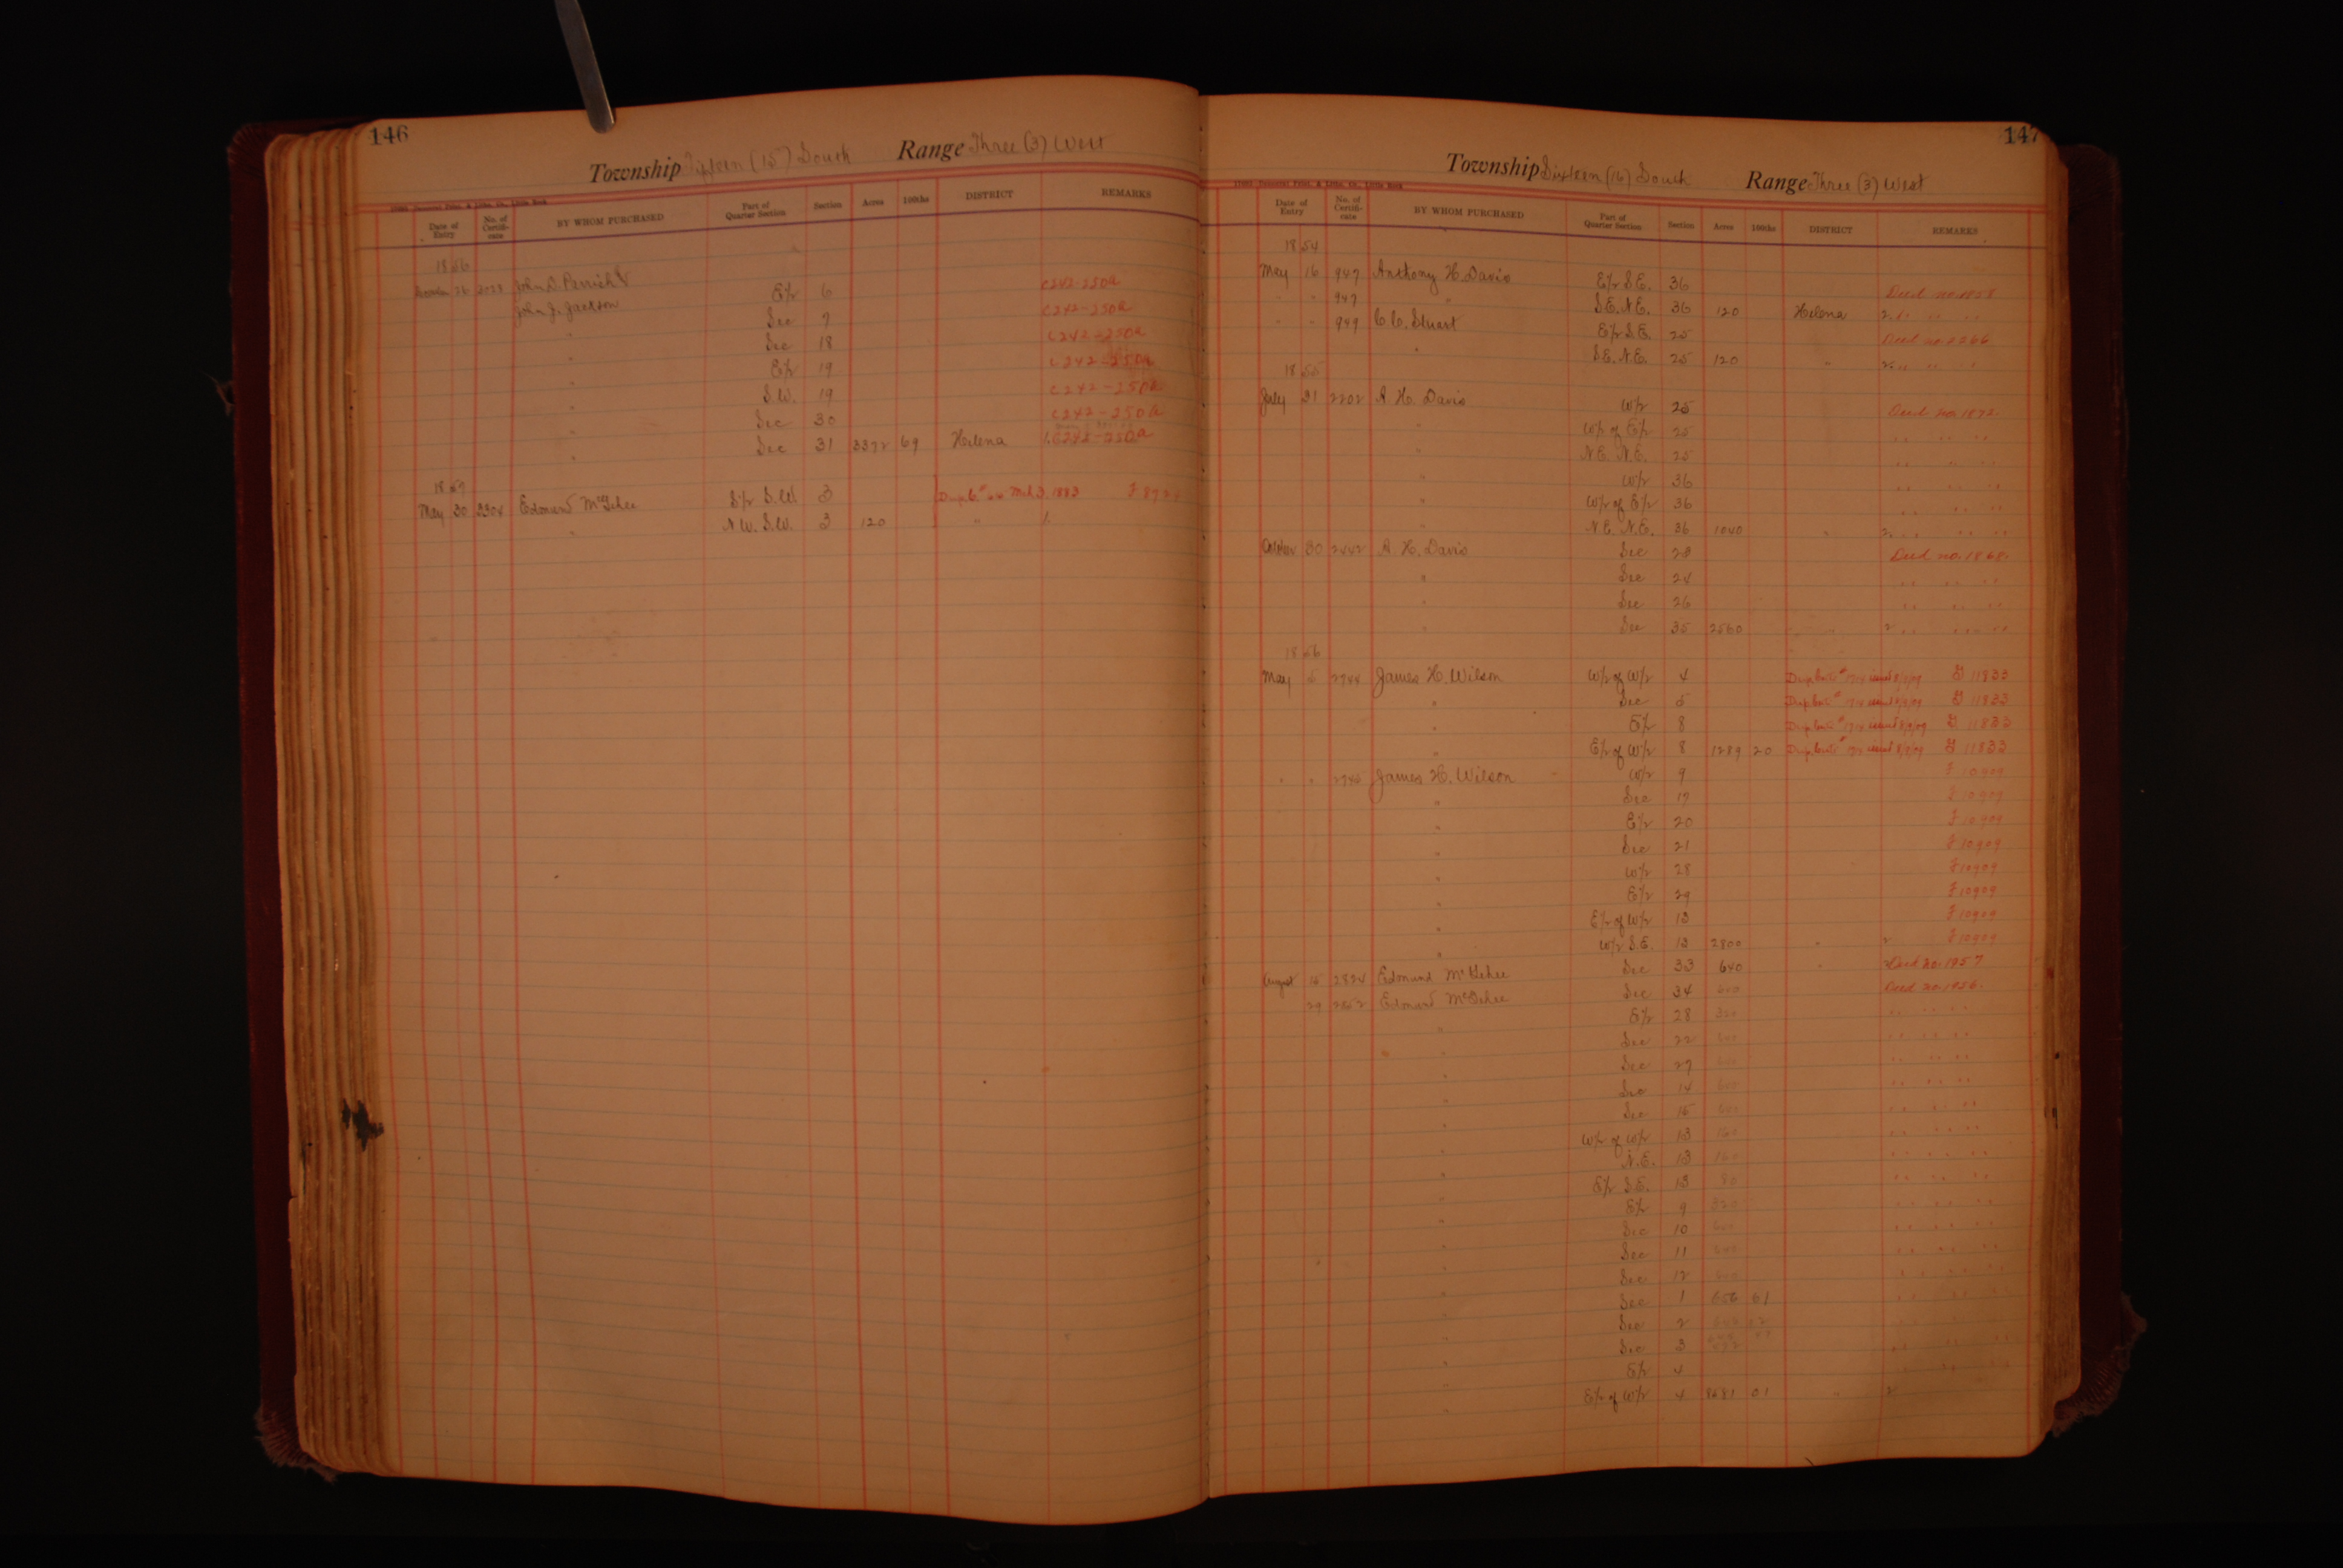 146
Township Fifteen (15) South Range Three (3) West
Date of Entry No. of Certifi-cate BY WHOM PURCHASED Part of Quarter Section Section Acres 100ths DISTRICT REMARKS
1856
26 John D. Parrish & E/2 6 C242-250a
John J. Jackson Sec 7 C242-250a
" Sec 18 C242-250a
" E/2 19 C242-250a
" S.W. 19 C242-250a
" Sec 30 C242-250a
" Sec 31 3372 69 Helena 1. C242-250a
1857
May 30 3304 Edmund McGehee S/2 S.W. 3 Mch 3. 1883
" N.W. S.W. 3 120 " 1.
147
Township Sixteen (16) South Range Three (3) West
Date of Entry No. of Certifi-cate BY WHOM PURCHASED Part of Quarter Section Section Acres 100ths DISTRICT REMARKS
1854
May 16 947 Anthony H. Davis E/2 S.E. 36 Deed no. 1858
" " 947 " S.E. N.E. 36 120 Helena 2. " " "
" " 949 C. C. Stuart E/2 S.E. 25 Deed no. 2266
" S.E. N.E. 25 120 " 2. " " "
1855
July 31 2202 A. H. Davis W/2 25 Deed no. 1872.
" W/2 of E/2 25 " " "
" N.E. N.E. 25 " " "
" W/2 36 " " "
" W/2 of E/2 36 " " "
" N.E. N.E. 36 1040 " 2. " " "
October 30 2442 A. H. Davis Sec 23 Deed no. 1868.
" Sec 24 " " "
" Sec 26 " " "
" Sec 35 2560 " " 2 " " "
1856
May 5 2744 James H. Wilson W/2 of W/2 4 G 11833
" Sec 5 G 11833
" E/2 8 G 11833
" E/2 of W/2 8 1289 20 G 11833
" " 2745 James H. Wilson W/2 9 F 10909
" Sec 17 F 10909
" E/2 20 F 10909
" Sec 21 F 10909
" W/2 28 F 10909
" E/2 29 F 10909
" E/2 of W/2 13 F 10909
" W/2 S.E. 13 2800 " 2 F 10909
August 15 2824 Edmund McGehee Sec 33 640 " Deed no. 1957
29 2862 Edmund McGehee Sec 34 640 Deed no. 1956.
" E/2 28 320 " " "
" Sec 22 640 " " "
" Sec 27 640 " " "
" Sec 14 640 " " "
" Sec 15 640 " " "
" W/2 of W/2 13 160 " " "
" N.E. 13 160 " " "
" E/2 S.E. 13 80 " " "
" E/2 9 320 " " "
" Sec 10 640 " " "
" Sec 11 640 " " "
" Sec 12 640 " " "
" Sec 1 656 61 " " "
" Sec 2 " " "
" Sec 3 " " "
" E/2 4 " " "
" E/2 of W/2 4 8681 01 " 2